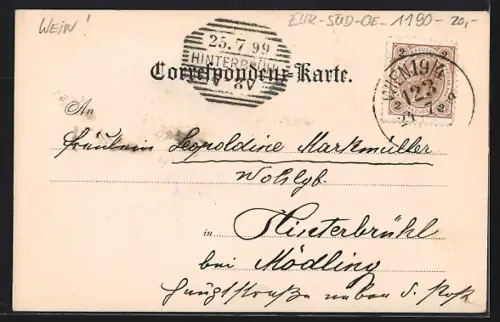 WEIN!
EUR-SÜD-OE-1190-20,-
25.7.99
HINTERBRÜHL
8V
Correspondenz-Karte.
2 2
WIEN 19/1
2 2
An
Fräulein Leopoldine Markmüller
Wohlgb.
in Hinterbrühl
bei Mödling
Hauptstraße neben d. Post